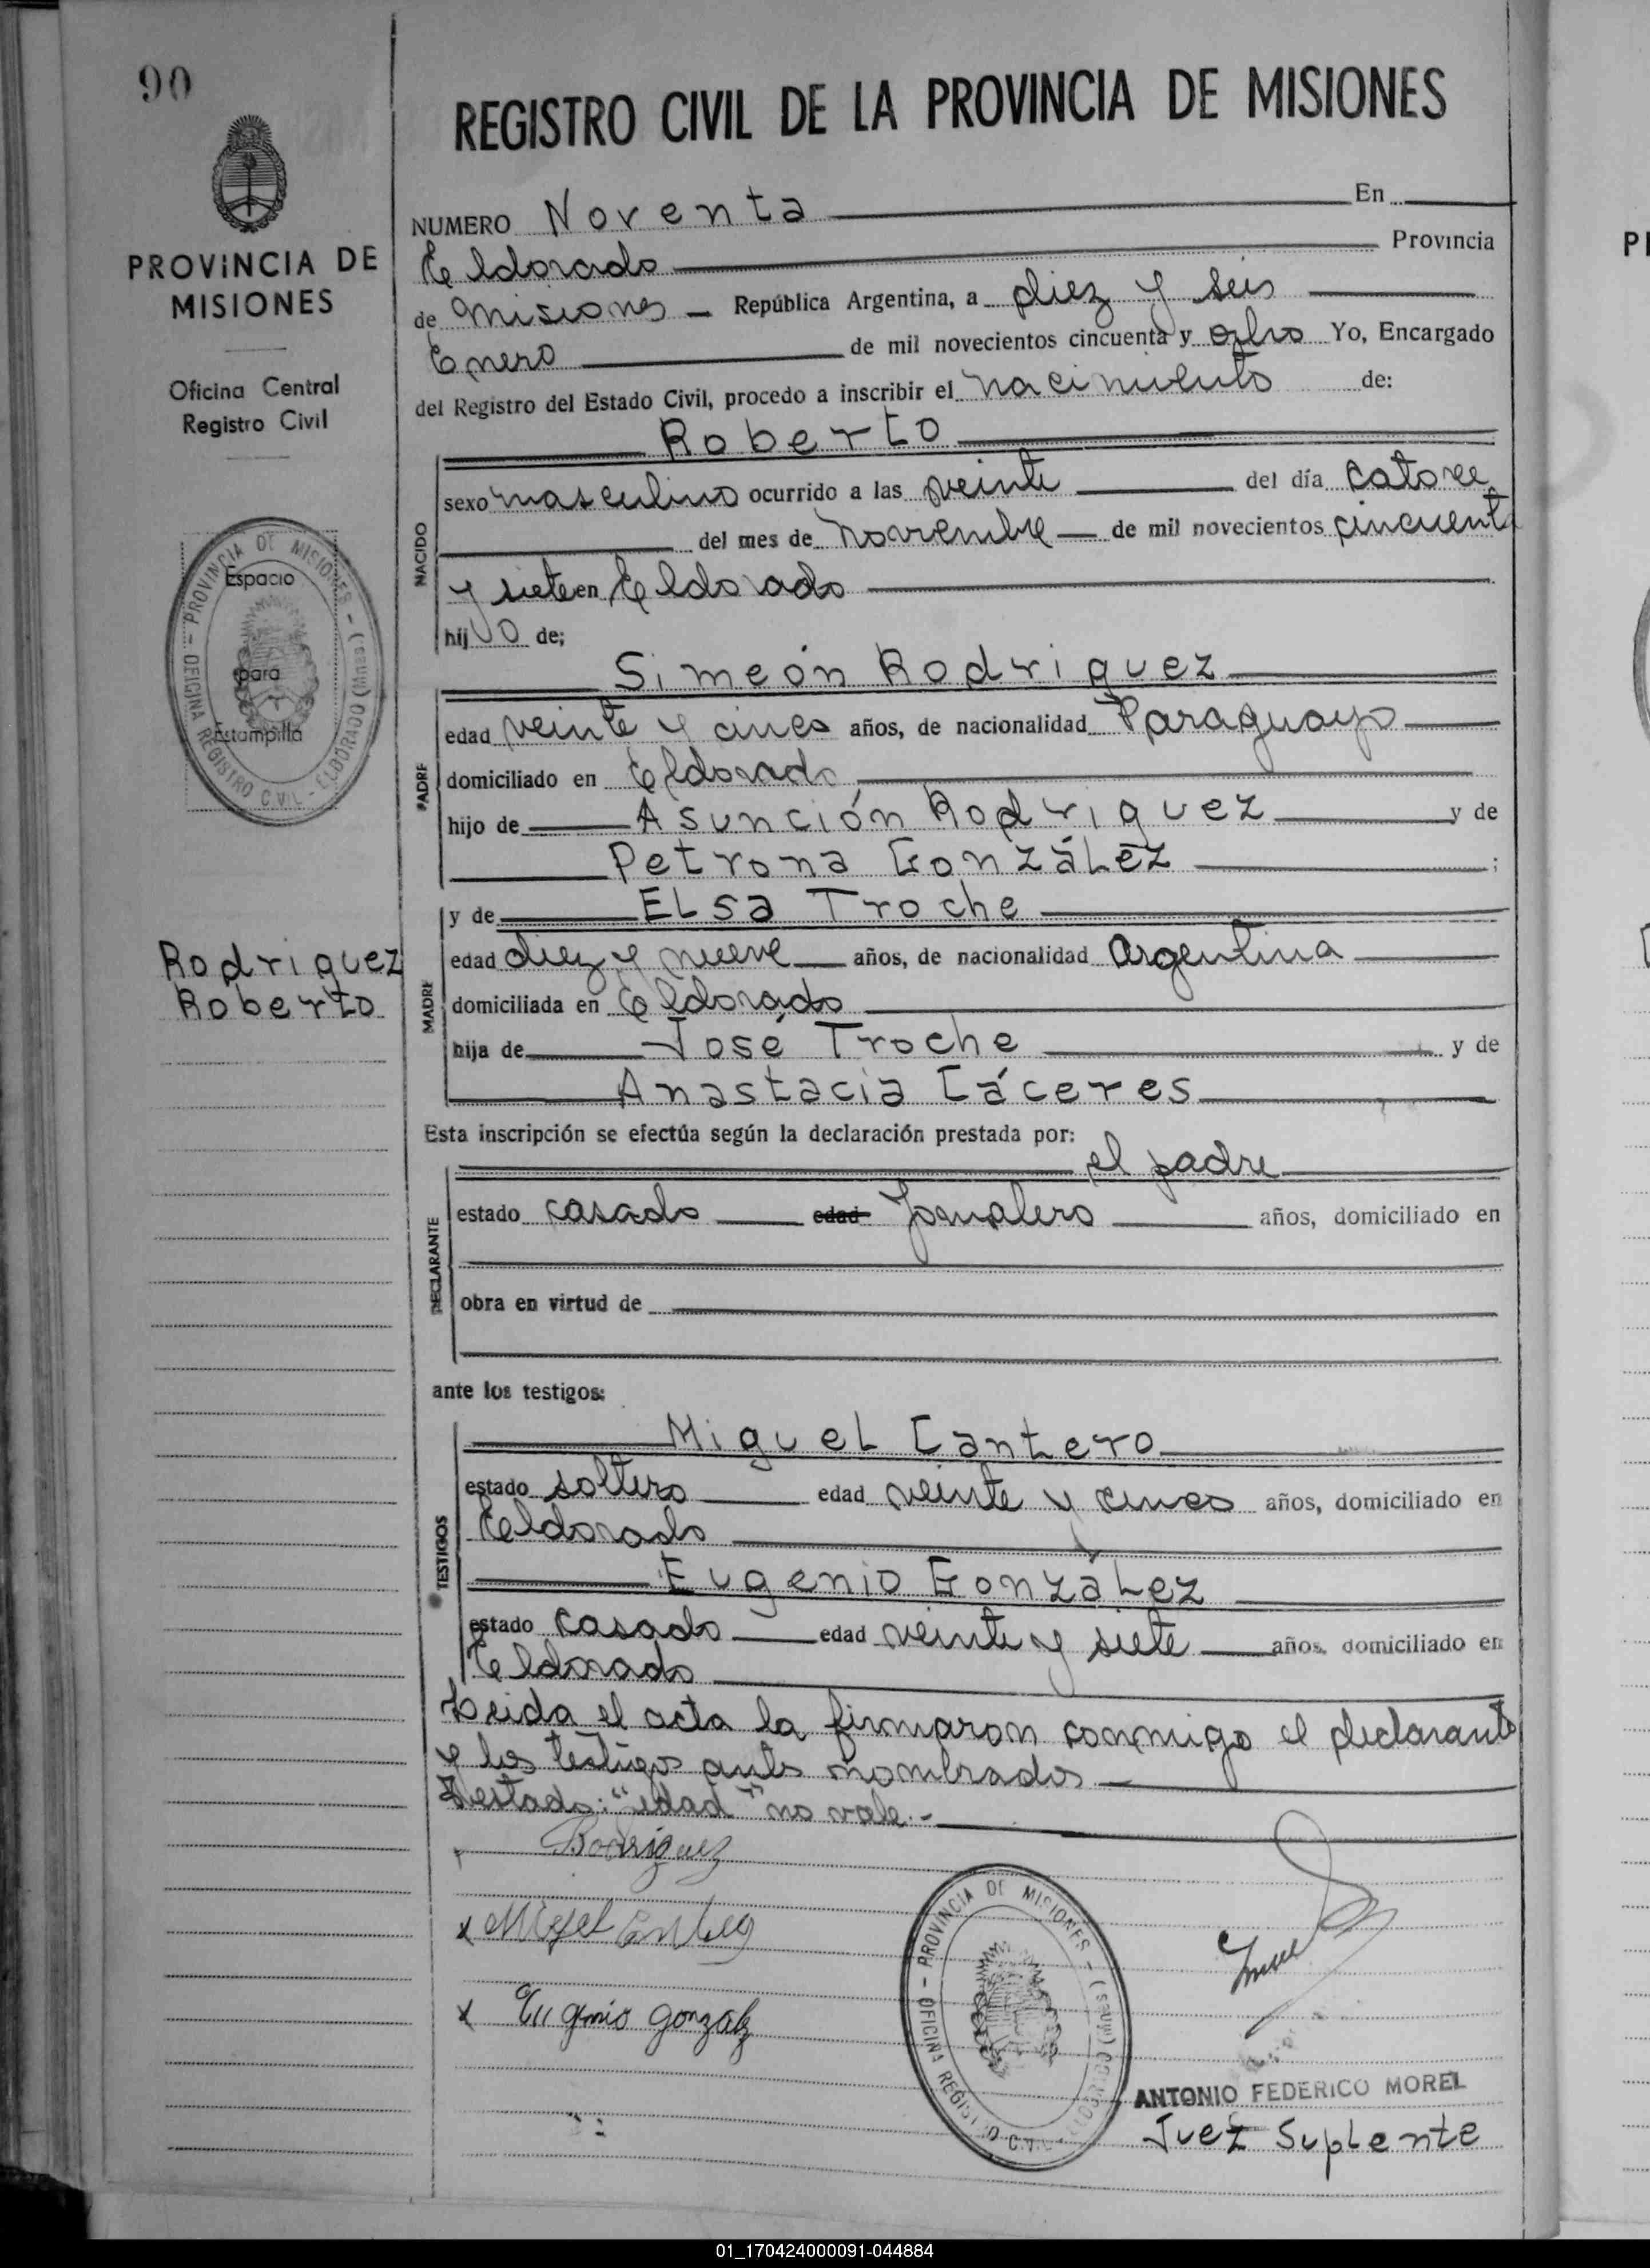 90
REGISTRO CIVIL DE LA PROVINCIA DE MISIONES
PROVINCIA DE
MISIONES
Oficina Central
Registro Civil
PROVINCIA DE MISIONES - (Mnes) ELDORADO - OFICINA REGISTRO CIVIL -
Espacio
para
Estampilla
Rodriguez
Roberto
NUMERO Noventa En
Eldorado Provincia
de Misiones República Argentina, a diez y seis
Enero de mil novecientos cincuenta y ocho Yo, Encargado
del Registro del Estado Civil, procedo a inscribir el nacimiento de:
Roberto
NACIDO
sexo masculino ocurrido a las veinte del día catorce
del mes de noviembre de mil novecientos cincuenta
y siete en Eldorado
hij o de;
Simeón Rodriguez
PADRE
edad veinte y cinco años, de nacionalidad Paraguayo
domiciliado en Eldorado
hijo de Asunción Rodriguez y de
Petrona González ;
y de Elsa Troche
MADRE
edad diez y nueve años, de nacionalidad Argentina
domiciliada en Eldorado
hija de José Troche y de
Anastacia Cáceres
Esta inscripción se efectúa según la declaración prestada por:
el padre
DECLARANTE
estado casado edad Jornalero años, domiciliado en
obra en virtud de
ante los testigos:
Miguel Cantero
TESTIGOS
estado soltero edad veinte y cinco años, domiciliado en
Eldorado
Eugenio González
estado casado edad veinte y siete años, domiciliado en
Eldorado
Leida el acta la firmaron conmigo el declarante
y los testigos antes nombrados
Testado: "edad" no vale.-
Rodriguez
x Miguel
x Eugenio Gonzalz
PROVINCIA DE MISIONES - (Mnes) ELDORADO - OFICINA REGISTRO CIVIL -
ANTONIO FEDERICO MOREL
Juez Suplente
01_170424000091-044884